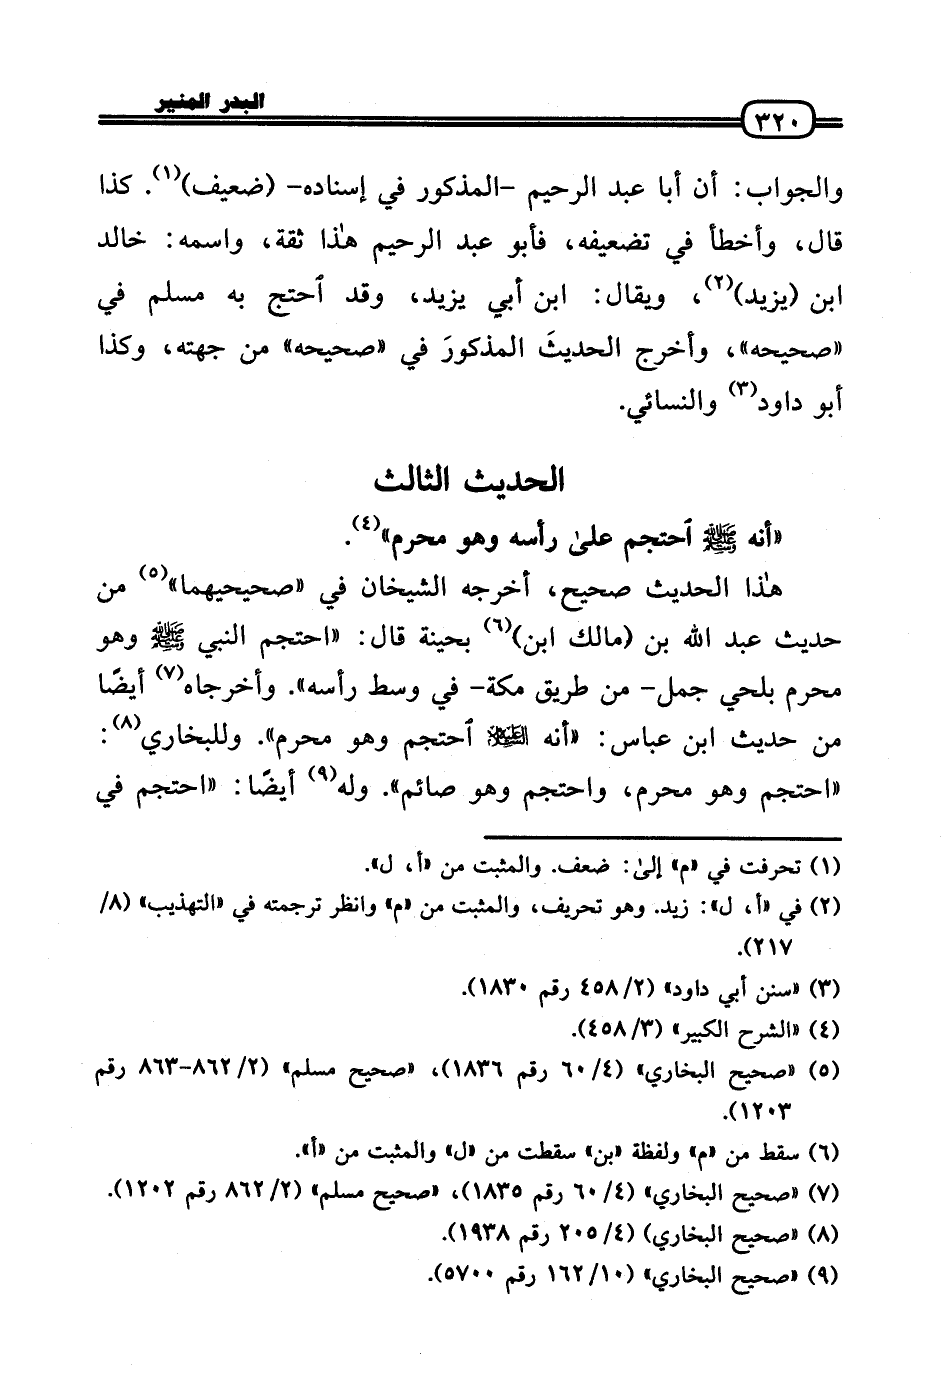 البدر المنير
٣٢٠
والجواب: أن أبا عبد الرحيم -المذكور في إسناده- (ضعيف)(١). كذا
قال، وأخطأ في تضعيفه، فأبو عبد الرحيم هٰذا ثقة، واسمه: خالد
ابن (يزيد)(٢)، ويقال: ابن أبي يزيد، وقد ٱحتج به مسلم في
«صحيحه»، وأخرج الحديثَ المذكورَ في «صحيحه» من جهته، وكذا
أبو داود(٣) والنسائي.
الحديث الثالث
«أنه ﷺ ٱحتجم علىٰ رأسه وهو محرم»(٤).
هٰذا الحديث صحيح، أخرجه الشيخان في «صحيحيهما»(٥) من
حديث عبد الله بن (مالك ابن)(٦) بحينة قال: «احتجم النبي ﷺ وهو
محرم بلحي جمل- من طريق مكة- في وسط رأسه». وأخرجاه(٧) أيضًا
من حديث ابن عباس: «أنه العليلا ٱحتجم وهو محرم». وللبخاري(٨):
«احتجم وهو محرم، واحتجم وهو صائم». وله(٩) أيضًا: «احتجم في
(١) تحرفت في «م» إلىٰ: ضعف. والمثبت من «أ، ل».
(٢) في «أ، ل»: زيد. وهو تحريف، والمثبت من «م» وانظر ترجمته في «التهذيب» (٨/
٢١٧).
(٣) «سنن أبي داود» (٤٥٨/٢ رقم ١٨٣٠).
(٤) «الشرح الكبير» (٤٥٨/٣).
(٥) «صحيح البخاري» (٦٠/٤ رقم ١٨٣٦)، «صحيح مسلم» (٨٦٢/٢-٨٦٣ رقم
١٢٠٣).
(٦) سقط من «م» ولفظة «بن» سقطت من «ل» والمثبت من «أ».
(٧) «صحيح البخاري» (٦٠/٤ رقم ١٨٣٥)، «صحيح مسلم» (٨٦٢/٢ رقم ١٢٠٢).
(٨) «صحيح البخاري) (٢٠٥/٤ رقم ١٩٣٨).
(٩) «صحيح البخاري» (١٦٢/١٠ رقم ٥٧٠٠).